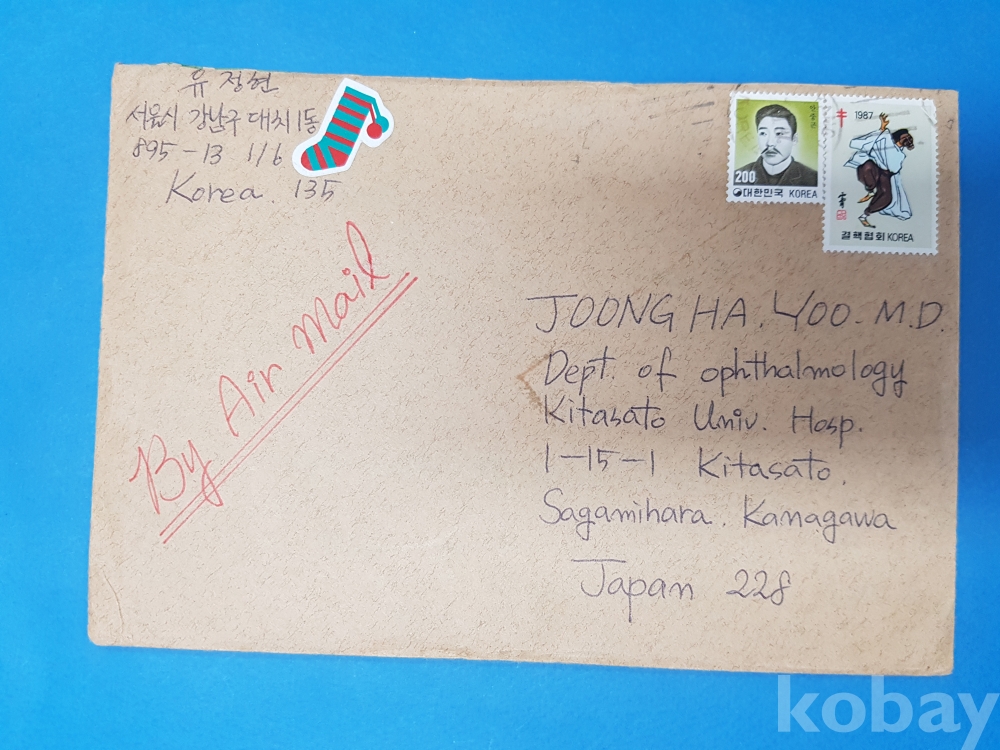 유 정현
서울시 강남구 대치1동
895-13 1/6
Korea. 135
안중근
200
대한민국 KOREA
1987
결핵협회 KOREA
By Air Mail
JOONG HA. YOO. M.D.
Dept. of ophthalmology
Kitasato Univ. Hosp.
1-15-1 Kitasato.
Sagamihara. Kanagawa
Japan 228
kobay